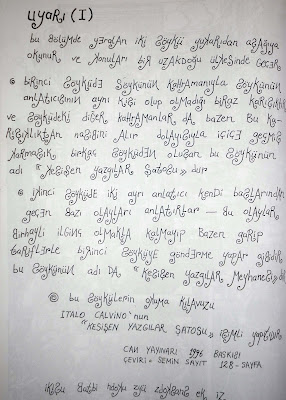 uyarı (I)
bu bölümde yeralan iki öykü yukarıdan aşağıya
okunur ve konuları bir uzakdoğu ülkesinde geçer
birinci öyküde öykünün kahramanıyla öykünün
anlatıcısının aynı kişi olup olmadığı biraz karışıktır
ve öyküdeki diğer kahramanlar da bazen bu ka-
rışıklıktan nasibini alır dolayısıyla içiçe geçmiş
karmaşık birkaç öyküden oluşan bu öykünün
adı "kesişen yazgılar şatosu" dur
ikinci öyküde iki ayrı anlatıcı kendi başlarından
geçen bazı olayları anlatırlar — bu olaylar,
birhayli ilginç olmakla kalmayıp bazen garip
tariflerle birinci öyküye gönderme yapar gibidir
bu öykünün adı da, "kesişen yazgılar meyhanesi" dir
© bu öykülerin okuma kılavuzu
ITALO CALVINO'nun
"KESİŞEN YAZGILAR ŞATOSU" isimli yapıtıdır
CAN YAYINARI 1996 BASKISI
ÇEVİRİ = SEMİN SAYIT 128-SAYFA